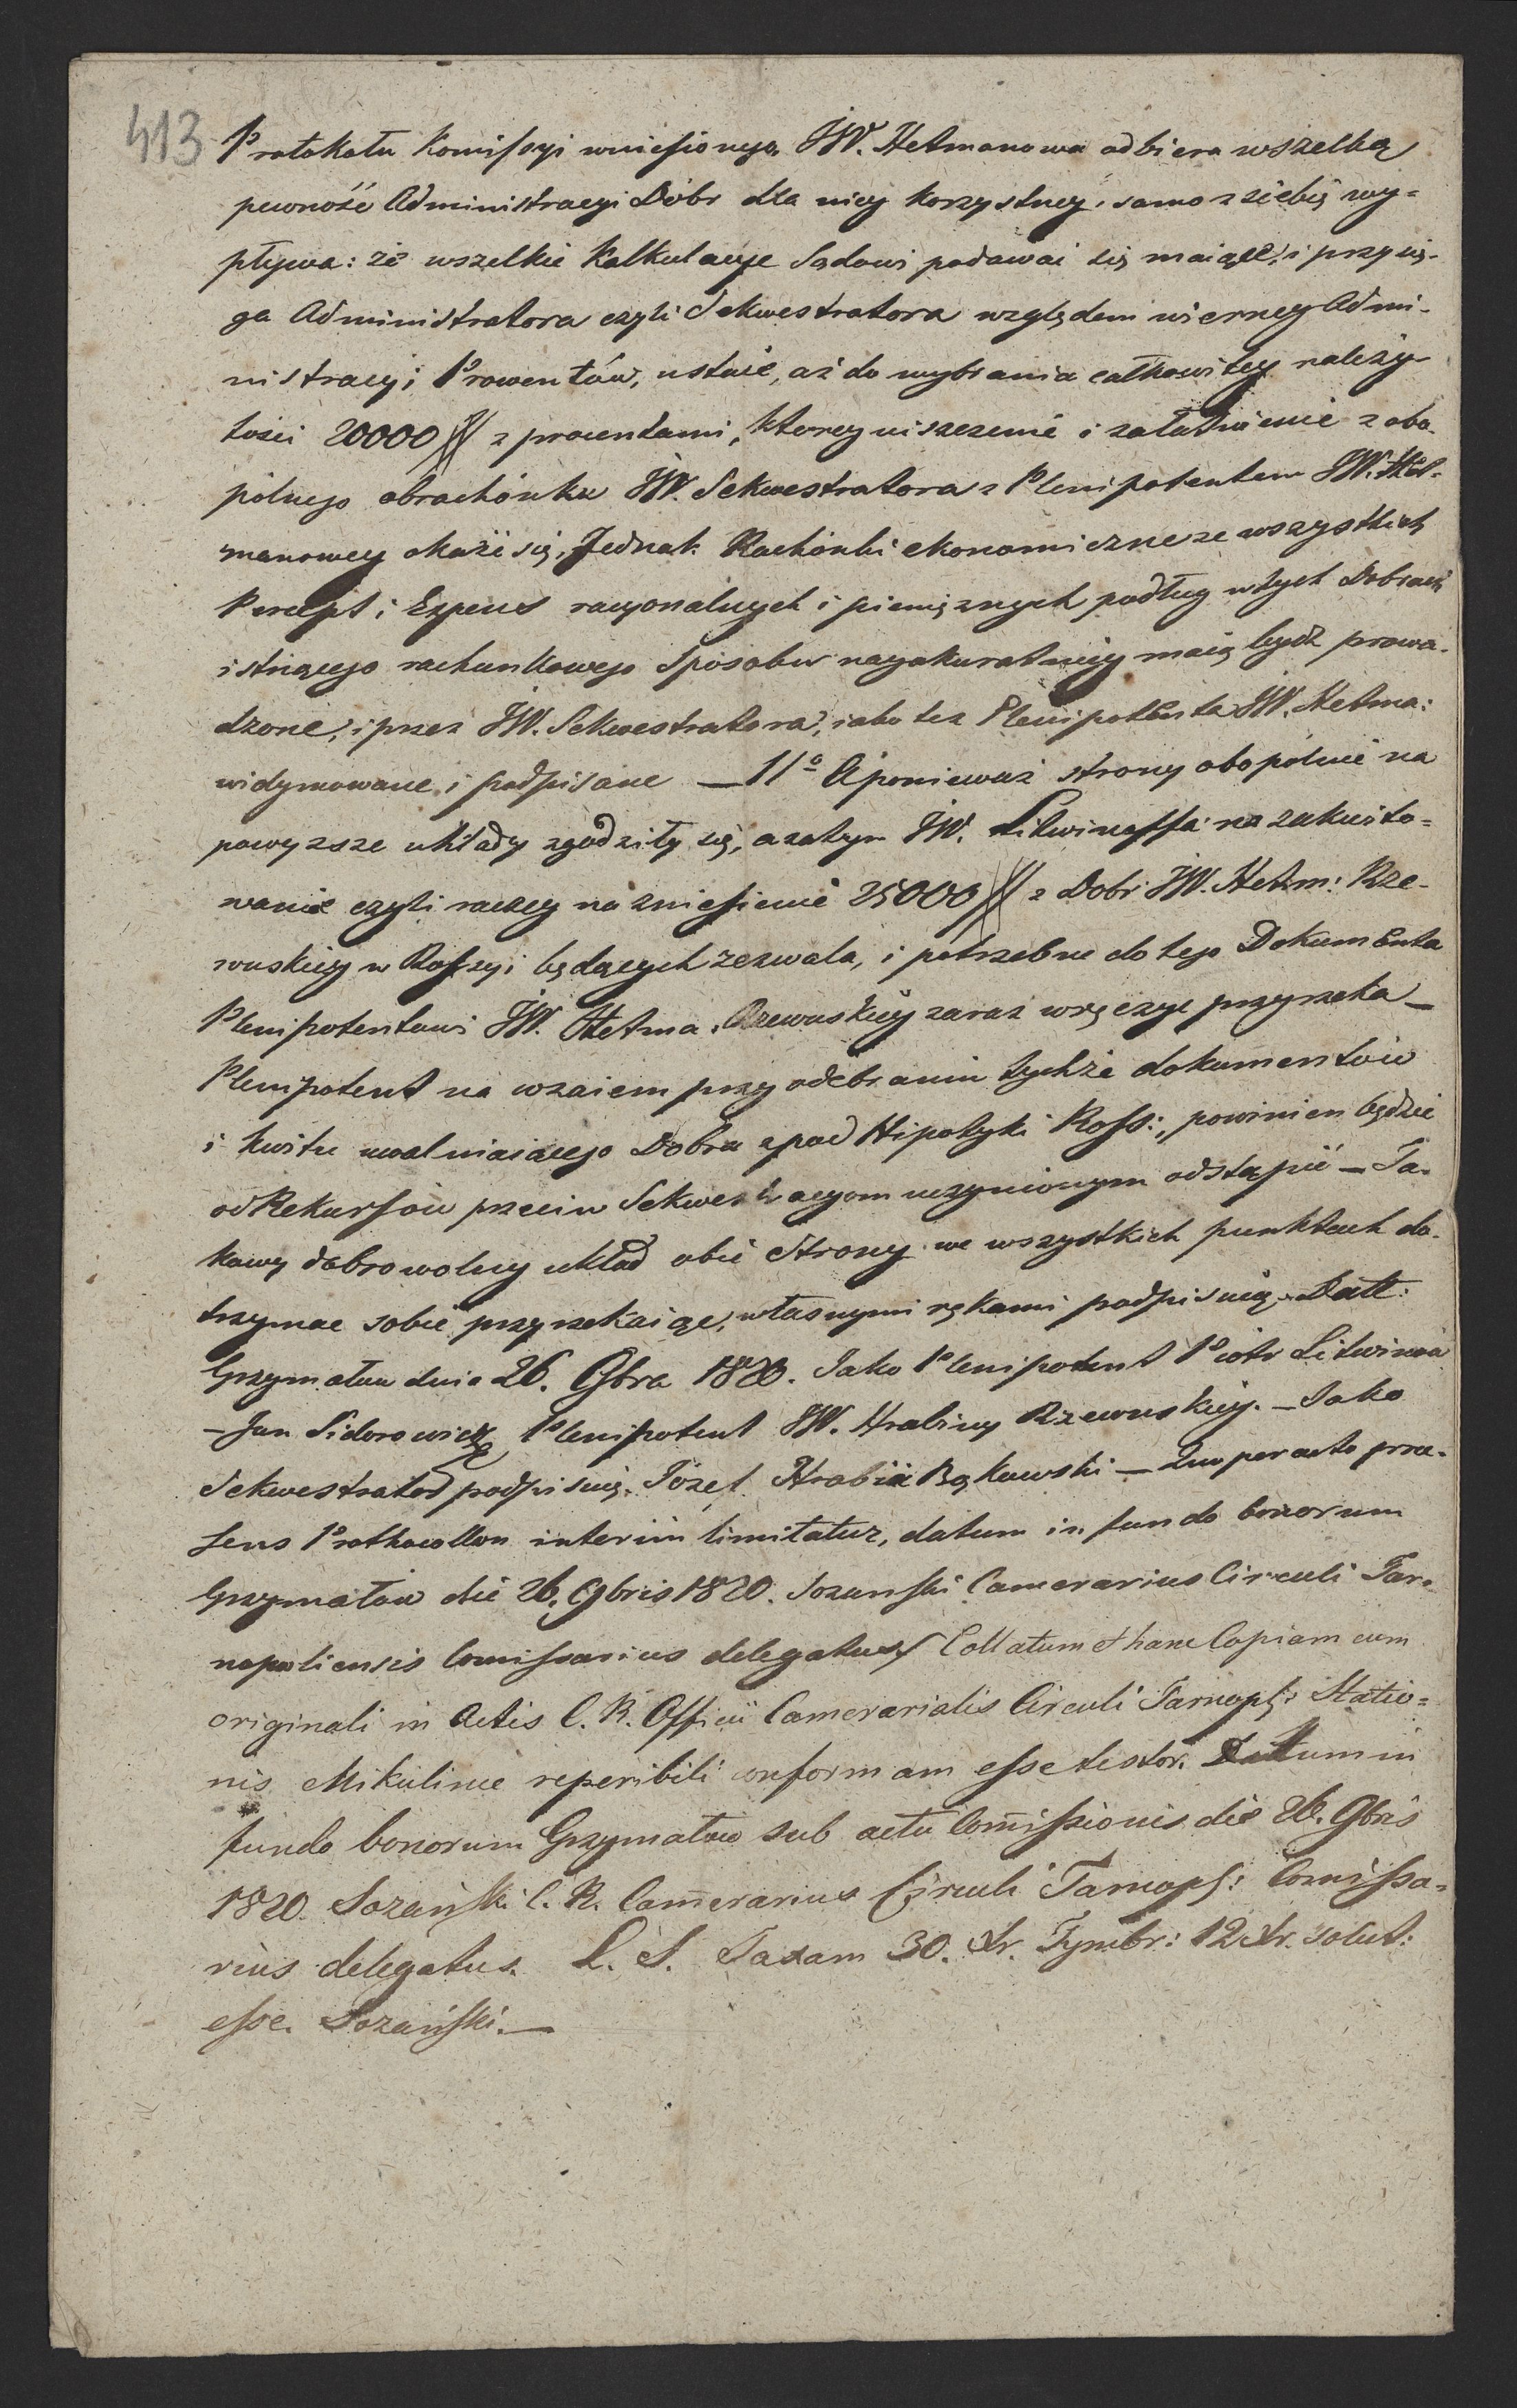 413
Protokołu Komissyi wniesionego JW. Hetmanowa odbiera wszelką
pewność Administracyi Dóbr dla niey korzystney, samo z siebie wy=
pływa: że wszelkie Kalkulacye Sądowi podawać się maiące, i przysię-
ga Administratora czyli Sekwestratora względem wierney Admi-
nistracyi Prowentów, ustaie, aż do wybrania całkowitey należy-
tości 20000 # z procentami, ktorey uiszczenie i załatwienie z obo-
pólnego obrachónku JW. Sekwestratora z Plenipotentem JW. Het-
manowey okaże się, Jednak Rachónki ekonomiczne ze wszystkich
Percept i Expens racyonalnych i pieniężnych podług w tych Dobrach
istniącego rachunkowego Sposobu nayakuratniey maią bydź prowa-
dzone, i przez JW. Sekwestratora, iako też Plenipotenta JW. Hetma:
widymowane i podpisane — 11º Aponieważ strony obopólnie na
powyższe układy zgodziły się, azatym JW. Litwinoffa na zakwito=
wanie czyli raczey na zniesienie 25000 # z Dobr JW. Hetm: Rze-
wuskiey w Rossyi będących zezwala, i potrzebne do tego Dokumenta
Plenipotentowi JW. Hetma. Rzewuskiey zaraz wręczyc przyrzeka —
Plenipotent na wzaiem przy odebraniu tychże dokumentów
i kwitu uwalniaiącego Dobra zpod Hipotyki Ross:, powinien będzie
od Rekursów przeciw Sekwestracyom uczynionym odstąpić — Ta-
kowy dobrowolny układ obie Strony we wszystkich punktach do-
trzymac sobie przyrzekaiąc, własnymi rękami podpisuią. Datt:
Grzymałow dnia 26. 9bra 1820. Jako Plenipotent Piotr Litwinow
— Jan Sidorowicz Plenipotent JW. Hrabiny Rzewuskiey. — Jako
Sekwestrator podpisuię. Józef Hrabia Bąkowski — Quo peracto prae-
sens Prothocollon interim limitatur, datum in fundo bonorum
Grzymałow die 26. 9bris 1820. Sozanski Camerarius Circuli Tar-
nopoliensis Comissarius delegatus / Collatum & hanc Copiam cum
originali in Actis C. R. Officii Camerarialis Circuli Tarnopl: Statio=
nis Mikulince reperibili conformam esse testor. Datum in
fundo bonorum Grzymałow sub actu Comissionis die 26. 9bris
1820. Sozański C. R. Camerarius Circuli Tarnopl: Comissa=
rius delegatus. L. S. Taxam 30. Xr. Tymbr: 12 Xr. solut:
esse. Sozański. —